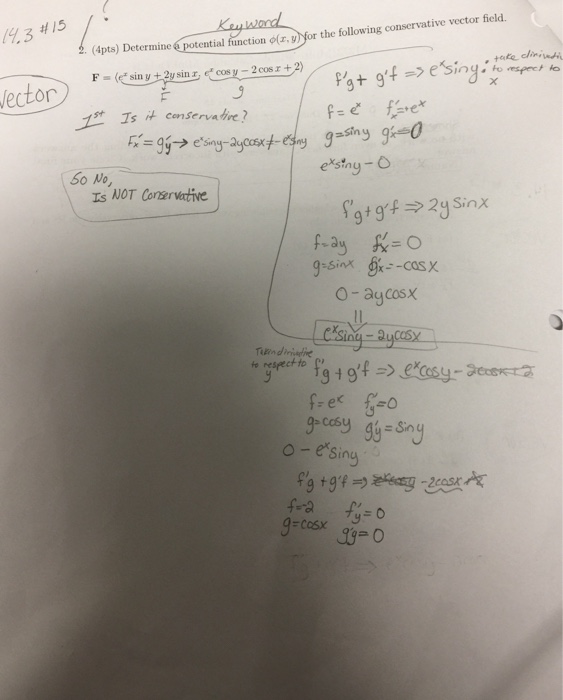 14.3 #15
Keyword
2. (4pts) Determine a potential function φ(x, y) for the following conservative vector field.
F = (eˣ sin y + 2y sin x, eˣ cos y − 2 cos x + 2)
F g
Vector
1st Is it conservative?
Fx' = gy' → eˣsiny-2ycosx ≠ -eˣsiny
So No,
Is NOT Conservative
f'g + g'f => eˣsiny : take
to respect to
x
f = eˣ fx' = eˣ
g = siny gx' = 0
eˣsiny - 0
f'g + g'f => 2y sinx
f = 2y fx' = 0
g = sinx gx' = -cosx
0 - 2ycosx
||
eˣsiny - 2ycosx
to respect to
y
f'g + g'f => eˣcosy - 2cosx + 2
f = eˣ fy' = 0
g = cosy gy' = siny
0 - eˣsiny
f'g + g'f => -2cosx
f = -2 fy' = 0
g = cosx g'y = 0